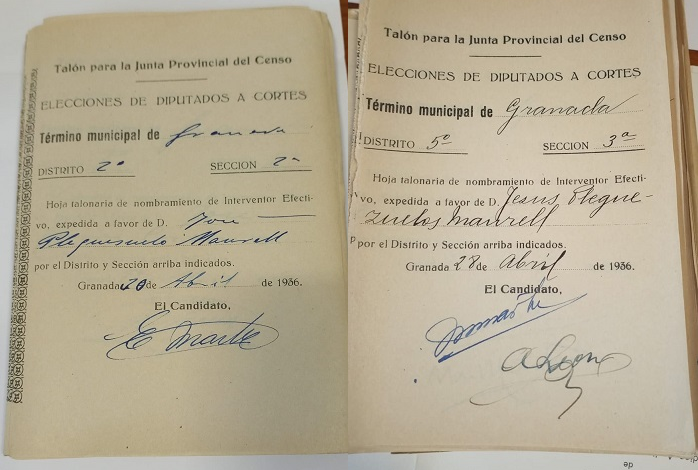 Talón para la Junta Provincial del Censo
ELECCIONES DE DIPUTADOS A CORTES
Término municipal de Granada
DISTRITO 2º SECCION 2ª
Hoja talonaria de nombramiento de Interventor Efecti-
vo, expedida a favor de D. Jose
Pleguezuelo Maurell
por el Distrito y Sección arriba indicados.
Granada 20 de Abril de 1936.
El Candidato,
Talón para la Junta Provincial del Censo
ELECCIONES DE DIPUTADOS A CORTES
Término municipal de Granada
DISTRITO 5º SECCION 3ª
Hoja talonaria de nombramiento de Interventor Efecti-
vo, expedida a favor de D. Jesus Plegue-
zuelos Maurell
por el Distrito y Sección arriba indicados.
Granada 28 de Abril de 1936.
El Candidato,